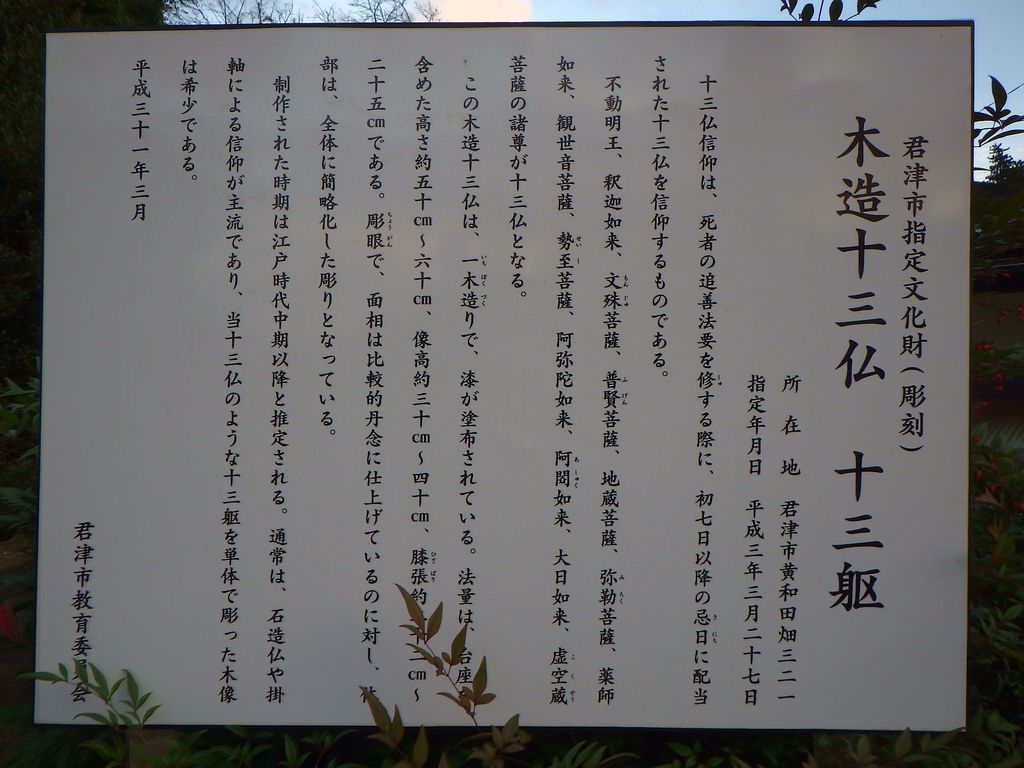 君津市指定文化財（彫刻）
木造十三仏　十三躯
所在地　君津市黄和田畑三二一
指定年月日　平成三年三月二十七日
十三仏信仰は、死者の追善法要を修する際に、初七日以降の忌日に配当
された十三仏を信仰するものである。
不動明王、釈迦如来、文殊菩薩、普賢菩薩、地蔵菩薩、弥勒菩薩、薬師
如来、観世音菩薩、勢至菩薩、阿弥陀如来、阿閦如来、大日如来、虚空蔵
菩薩の諸尊が十三仏となる。
この木造十三仏は、一木造りで、漆が塗布されている。法量は、台座
含めた高さ約五十cm～六十cm、像高約三十cm～四十cm、膝張約 cm～
二十五cmである。彫眼で、面相は比較的丹念に仕上げているのに対し、
部は、全体に簡略化した彫りとなっている。
制作された時期は江戸時代中期以降と推定される。通常は、石造仏や掛
軸による信仰が主流であり、当十三仏のような十三躯を単体で彫った木像
は希少である。
平成三十一年三月
君津市教育委員会